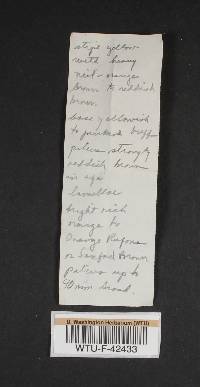 stipe yellow
with heavy
red-orange
brown to reddish
brown.
base yellowish
to pinkish buff
pileus strongly
reddish brown
in age
lamellae
bright rich
orange to
Orange Rufous
or Sanford Brown
pileus up to
90mm broad.
U. Washington Herbarium (WTU)
WTU-F-42433